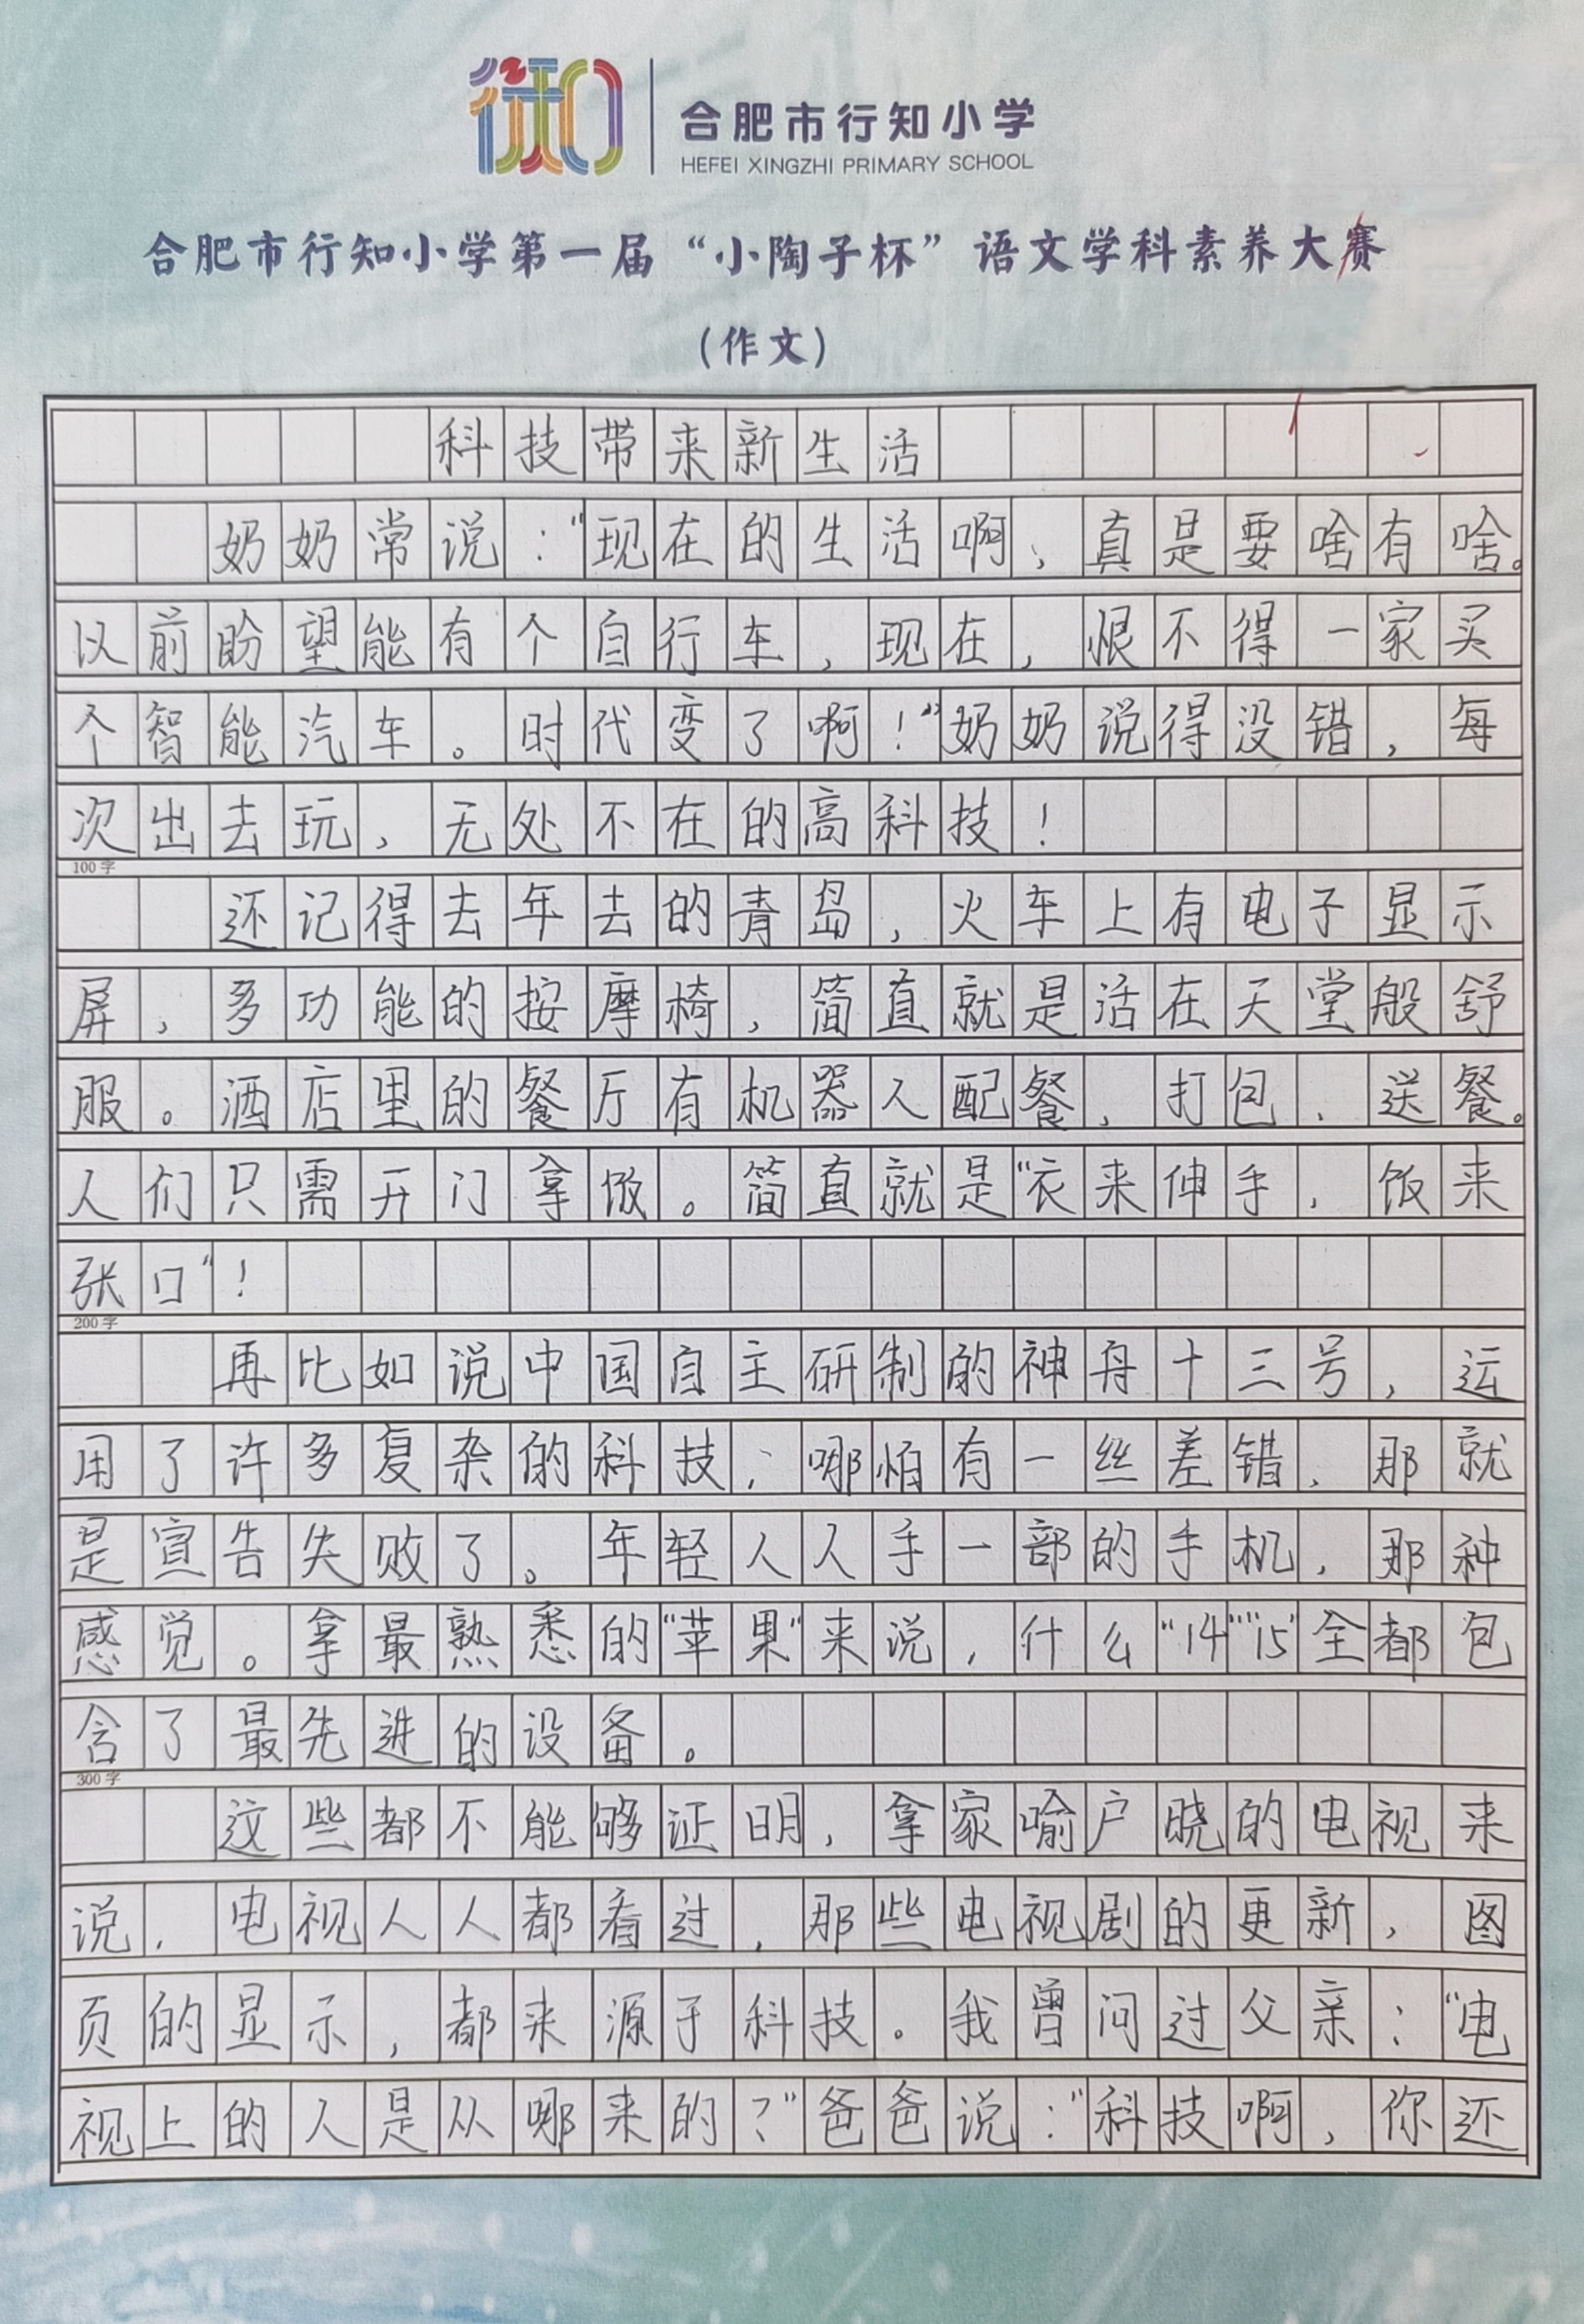 行知
合肥市行知小学
HEFEI XINGZHI PRIMARY SCHOOL
合肥市行知小学第一届“小陶子杯”语文学科素养大赛
(作文)
科技带来新生活
奶奶常说:“现在的生活啊,真是要啥有啥。
以前盼望能有个自行车,现在,恨不得一家买
个智能汽车。时代变了啊!”奶奶说得没错,每
次出去玩,无处不在的高科技!
100字
还记得去年去的青岛,火车上有电子显示
屏,多功能的按摩椅,简直就是活在天堂般舒
服。酒店里的餐厅有机器人配餐,打包,送餐。
人们只需开门拿饭。简直就是“衣来伸手,饭来
张口”!
200字
再比如说中国自主研制的神舟十三号,运
用了许多复杂的科技;哪怕有一丝差错,那就
是宣告失败了。年轻人人手一部的手机,那种
感觉。拿最熟悉的“苹果”来说,什么“14”“15”全都包
含了最先进的设备。
300字
这些都不能够证明,拿家喻户晓的电视来
说,电视人人都看过,那些电视剧的更新,图
页的显示,都来源于科技。我曾问过父亲:“电
视上的人是从哪来的?”爸爸说:“科技啊,你还